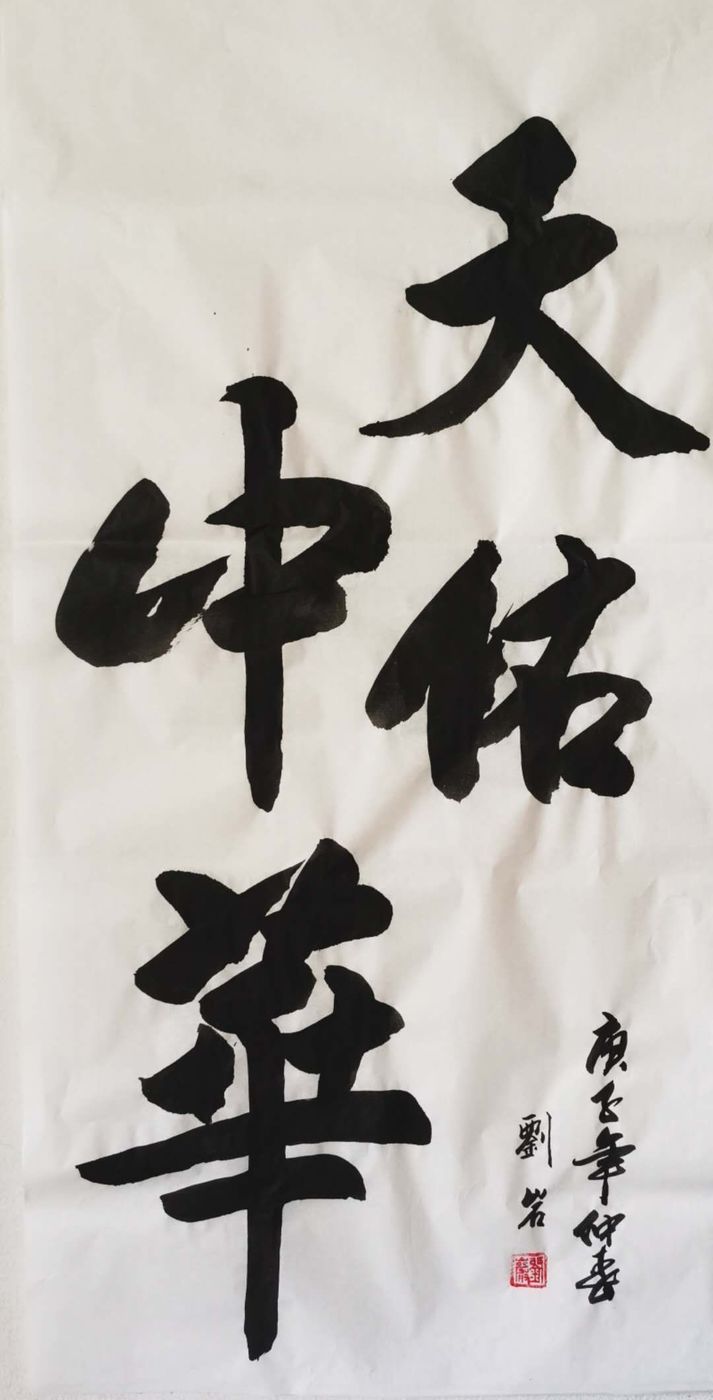 天佑
中華
庚子年仲春
劉岩